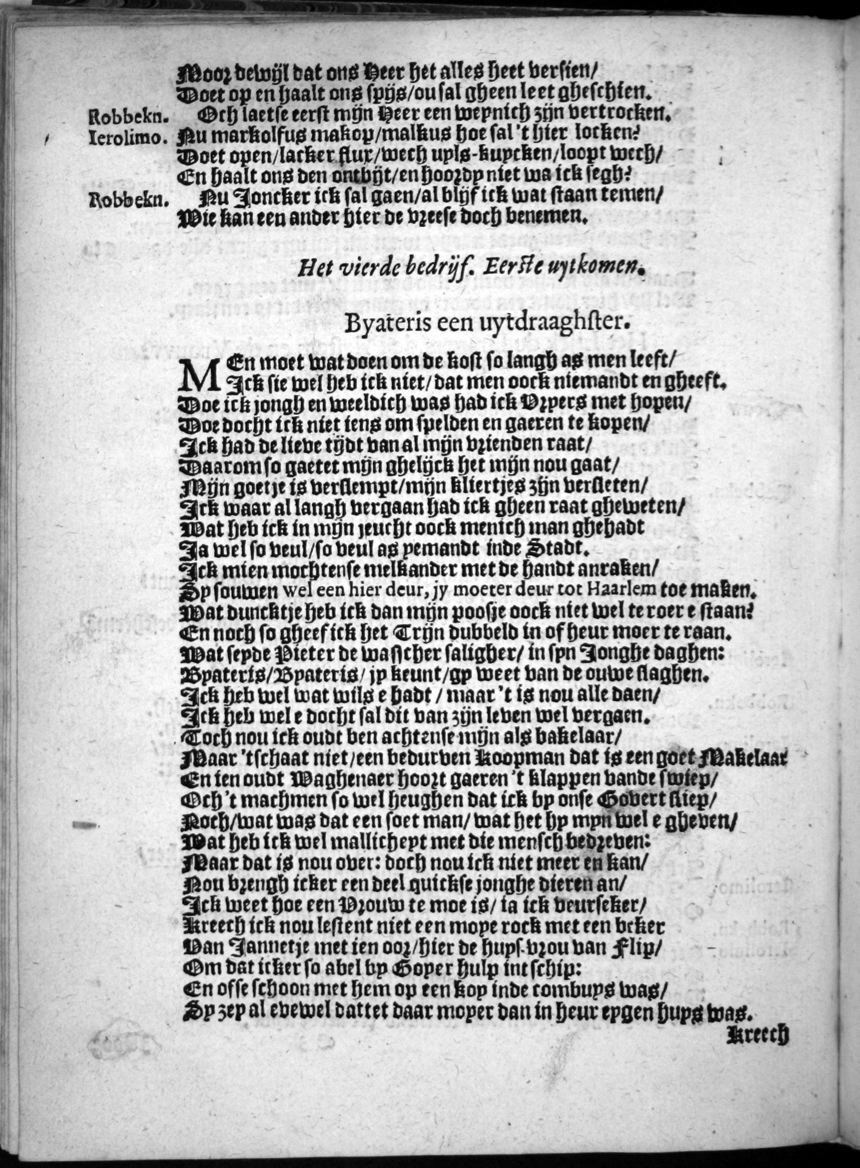 Moor dewijl dat ons Heer het alles heet versien/
Doet op en haalt ons spijs/ou sal gheen leet gheschien.
Robbekn. Och laetse eerst mijn Heer een weynich zijn vertrocken.
Ierolimo. Nu markolfus makop/malkus hoe sal 't hier locken?
Doet open/lacker flux/wech uyls-kuycken/loopt wech/
En haalt ons den ontbijt/en hoordy niet wa ick segh?
Robbekn. Nu Joncker ick sal gaen/al blijf ick wat staan temen/
Wie kan een ander hier de vreese doch benemen.
Het vierde bedrijf. Eerste uytkomen.
Byateris een uytdraaghster.
MEn moet wat doen om de kost so langh as men leeft/
Ick sie wel heb ick niet/dat men oock niemandt en gheeft.
Doe ick jongh en weeldich was had ick Vryers met hopen/
Doe docht ick niet iens om spelden en gaeren te kopen/
Ick had de lieve tijdt van al mijn vrienden raat/
Daarom so gaetet mijn ghelijck het mijn nou gaat/
Mijn goetje is verslempt/mijn kliertjes zijn versleten/
Ick waar al langh vergaan had ick gheen raat gheweten/
Wat heb ick in mijn jeucht oock menich man ghehadt
Ja wel so veul/so veul as yemandt inde Stadt.
Ick mien mochtense melkander met de handt anraken/
Sy souwen wel een hier deur, jy moeter deur tot Haarlem toe maken.
Wat duncktje heb ick dan mijn poosje oock niet wel te roer e staan?
En noch so gheef ick het Trijn dubbeld in of heur moer te raan.
Wat seyde Pieter de wasscher saligher/in syn Jonghe daghen:
Byateris/Byateris/jy keunt/gy weet van de ouwe slaghen.
Ick heb wel wat wils e hadt/maar 't is nou alle daen/
Ick heb wel e docht sal dit van zijn leven wel vergaen.
Toch nou ick oudt ben achtense mijn als bakelaar/
Maar 'tschaat niet/een bedurven Koopman dat is een goet Makelaar
En ien oudt Waghenaer hoort gaeren 't klappen vande swiep/
Och 't machmen so wel heughen dat ick by onse Govert sliep/
Noch/wat was dat een soet man/wat het hy myn wel e gheven/
Wat heb ick wel mallicheyt met die mensch bedreven:
Maar dat is nou over: doch nou ick niet meer en kan/
Nou brengh icker een deel quickse jonghe dieren an/
Ick weet hoe een Vrouw te moe is/ia ick veurseker/
Kreech ick nou lestent niet een moye rock met een beker
Van Jannetje met ien oor/hier de huys-vrou van Flip/
Om dat icker so abel by Goyer hulp int schip:
En offe schoon met hem op een koy inde combuys was/
Sy zey al evewel dattet daar moyer dan in heur eygen huys was.
Kreech